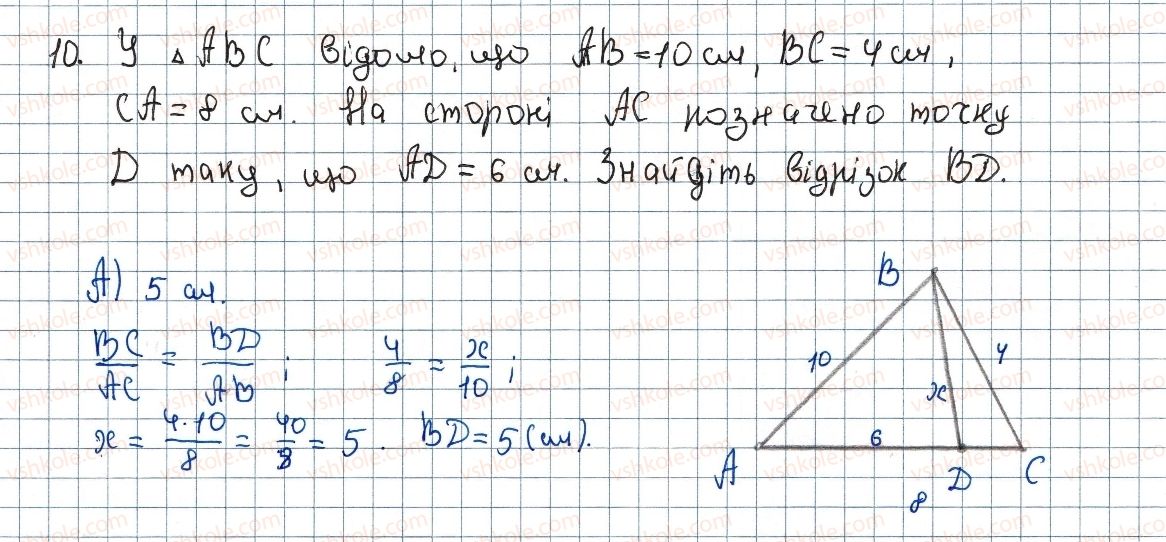 10. У △ABC відомо, що AB=10 см, BC=4 см,
CA=8 см. На стороні AC позначено точку
D таку, що AD=6 см. Знайдіть відрізок BD.
А) 5 см.
BC/AC = BD/AB; 4/8 = x/10;
x = 4·10/8 = 40/8 = 5. BD=5(см).
B
10
4
x
6
A
D
C
8